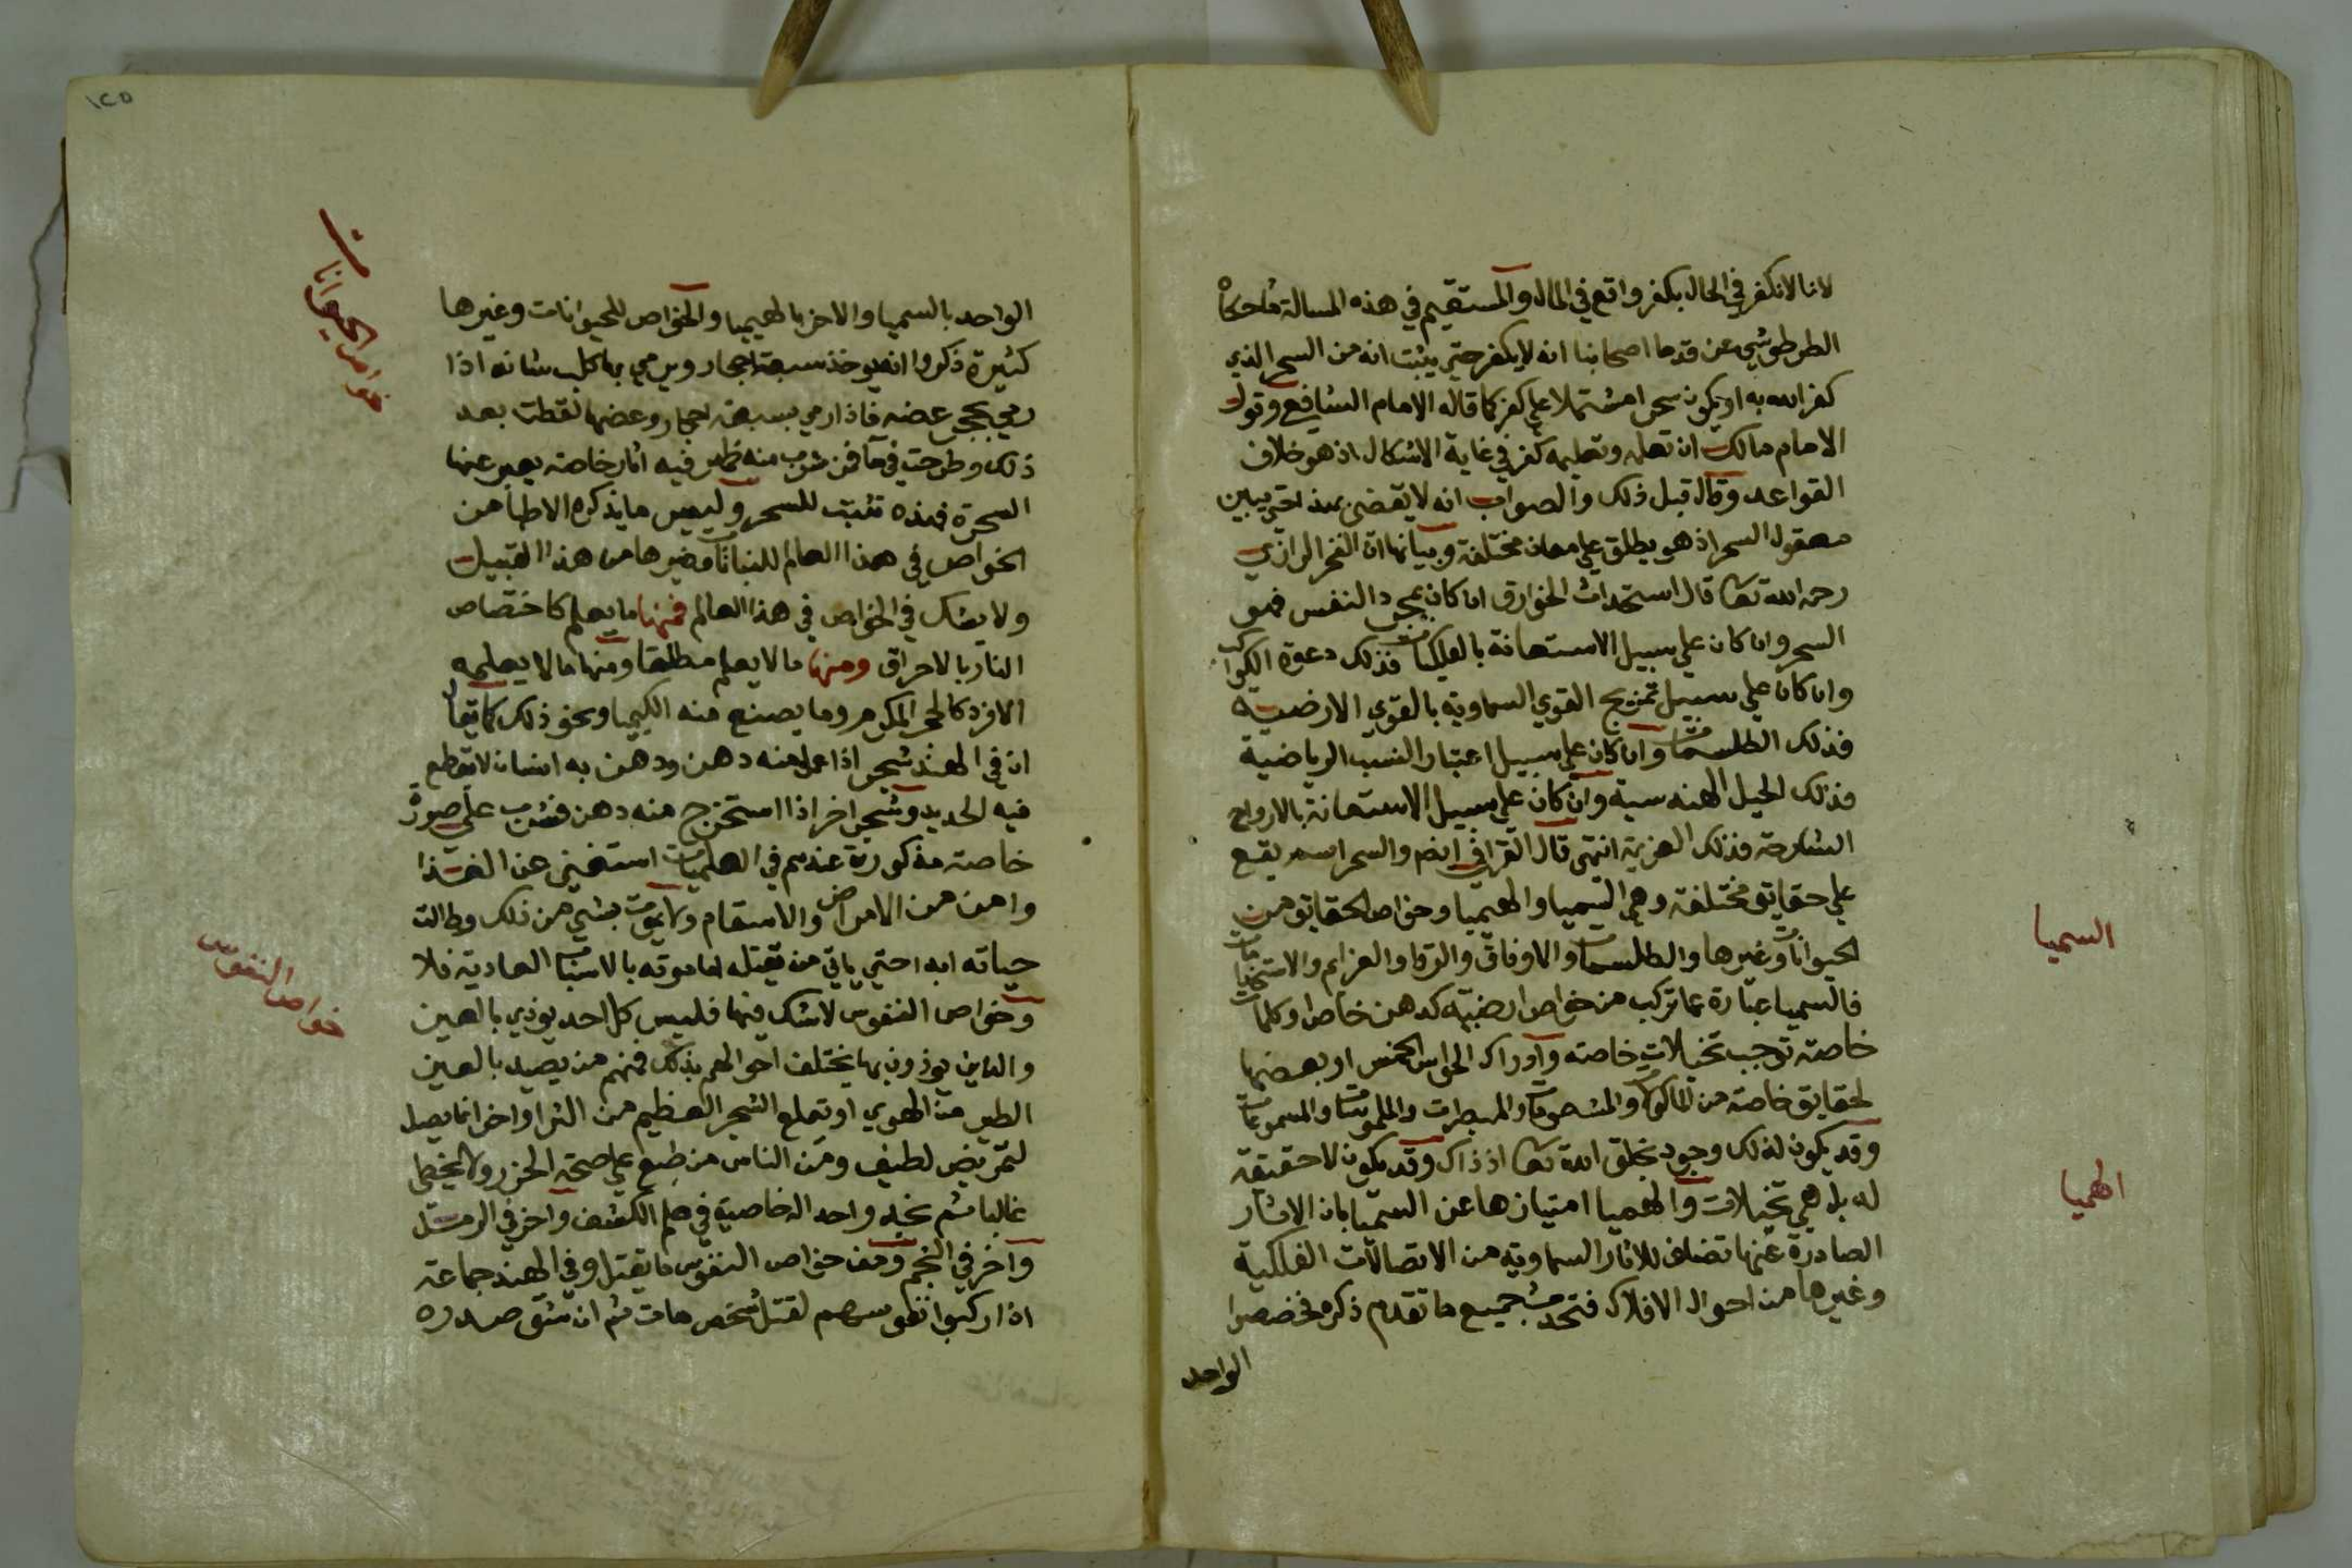 لانا لا نكفر في الحال بكفر واقع في المال والمستقيم في هذه المسالة ما حكاه
الطرطوشي عن قدما اصحابنا انه لا يكفر حتي يثبت انه من السحر الذي
كفر الله به او يكون سحرا مشتملا علي كفر كما قاله الامام الشافع وقول
الامام مالك ان تعلمه وتعليمه كفر في غاية الاشكال اذ هو خلاف
القواعد وقال قبل ذلك والصواب انه لا يقضي بهذا حتي يبين
معقول السحر اذ هو يطلق علي معان مختلفة وبيانها ان الفخر الرازي
رحمه الله تعا قال استحداث الخوارق ان كان بمجرد النفس فهو
السحر وان كان علي سبيل الاستعانة بالفلكيات فذلك دعوة الكواكب
وان كان علي سبيل تمزيج القوي السماوية بالقوي الارضية
فذلك الطلسمات وان كان علي سبيل اعتبار النسب الرياضية
فذلك الحيل الهندسية وان كان علي سبيل الاستعانة بالارواح
الساذجة فذلك العزيمة انتهي قال القرافي ايضم والسحر اسم يقع
علي حقايق مختلفة وهي السيميا والهيميا وخواص الحقايق من
الحيوانات وغيرها والطلسمات والاوفاق والرقا والعزايم والاستخدامات
فالسميا عبارة عما تركب من خواص ارضية كدهن خاص او كلمات
خاصة توجب تخيلات خاصه وادراك الحواس الخمس او بعضها
لحقايق خاصة من الماكولات والمشمومات والمبصرات والملموسات والمسموعات
وقد يكون لذلك وجود بخلق الله تعا اذ ذاك وقد يكون لا حقيقة
له بل هي تخيلات والهميا امتيازها عن السميا بان الاثار
الصادرة عنها تضاف للاثار السماوية من الاتصالات الفلكية
وغيرها من احوال الافلاك فتحدث جميع ما تقدم ذكره فخصصوا
الواحد
السميا
الهميا
١٢٥
الواحد بالسميا والاخر بالهيميا والخواص للحيوانات وغيرها
كثيرة ذكروا انه يوخذ سبعة احجار ويرمي بها كلب شانه اذا
رمي بحجر عضه فاذا رمي بسبعة احجار وعضها لقطت بعد
ذلك وطرحت في ما فمن شرب منه ظهر فيه اثار خاصة يعبر عنها
السحرة فهذه تثبت للسحر وليس ما يذكره الاطبا من
الخواص في هذا العالم للنباتات وغيرها من هذا القبيل
ولا يشك في الخواص في هذا العالم فمنها ما يعلم كاختصاص
النار بالاحراق ومنها ما لا يعلم مطلقا ومنها ما لا يعلمه
الافرد كالحجر المكرم وما يصنع منه الكيميا ونحو ذلك كما يقال
ان في الهند شجر اذا عمل منه دهن ودهن به انسان لا يقطع
فيه الحديد وشجر اخر اذا استخرج منه دهن فشرب علي صورة
خاصة مذكورة عندهم في العلميات استغني عن الغذا
وامن من الامراض والاسقام ولا يموت بشي من ذلك وطالت
حياته ابدا حتي ياتي من يقتله اما موته بالاسباب العادية فلا
وخواص النفوس لا شك فيها فليس كل احد يوذي بالعين
والذين يوذون بها يختلف احوالهم بذلك فمنهم من يصيد بالعين
الطير من الهوي او يقلع الشجر العظيم من الثرا واخر انما يصل
لتمريض لطيف ومن الناس من طبع علي صحة الحزر ولا يخطي
غالبا ثم نجد واحد اله خاصية في علم الكشف واخر في الرمل
واخر في النجم ومن خواص النفوس ما يقتل وفي الهند جماعة
اذا ركبوا نفوسهم لقتل شخص مات ثم ان شق صدره
خواص الحيوانات
خواص النفوس